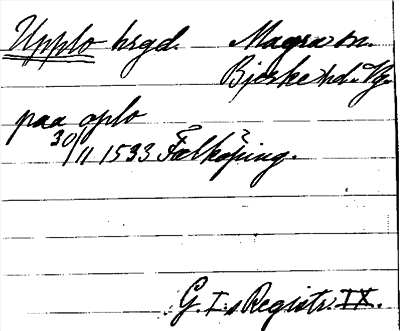 Upplo hrgd. Magra sn.
Bjerke hd. Vg.
paa oplo
30/11 1533 Falköping.
G. I:s Registr. IX.